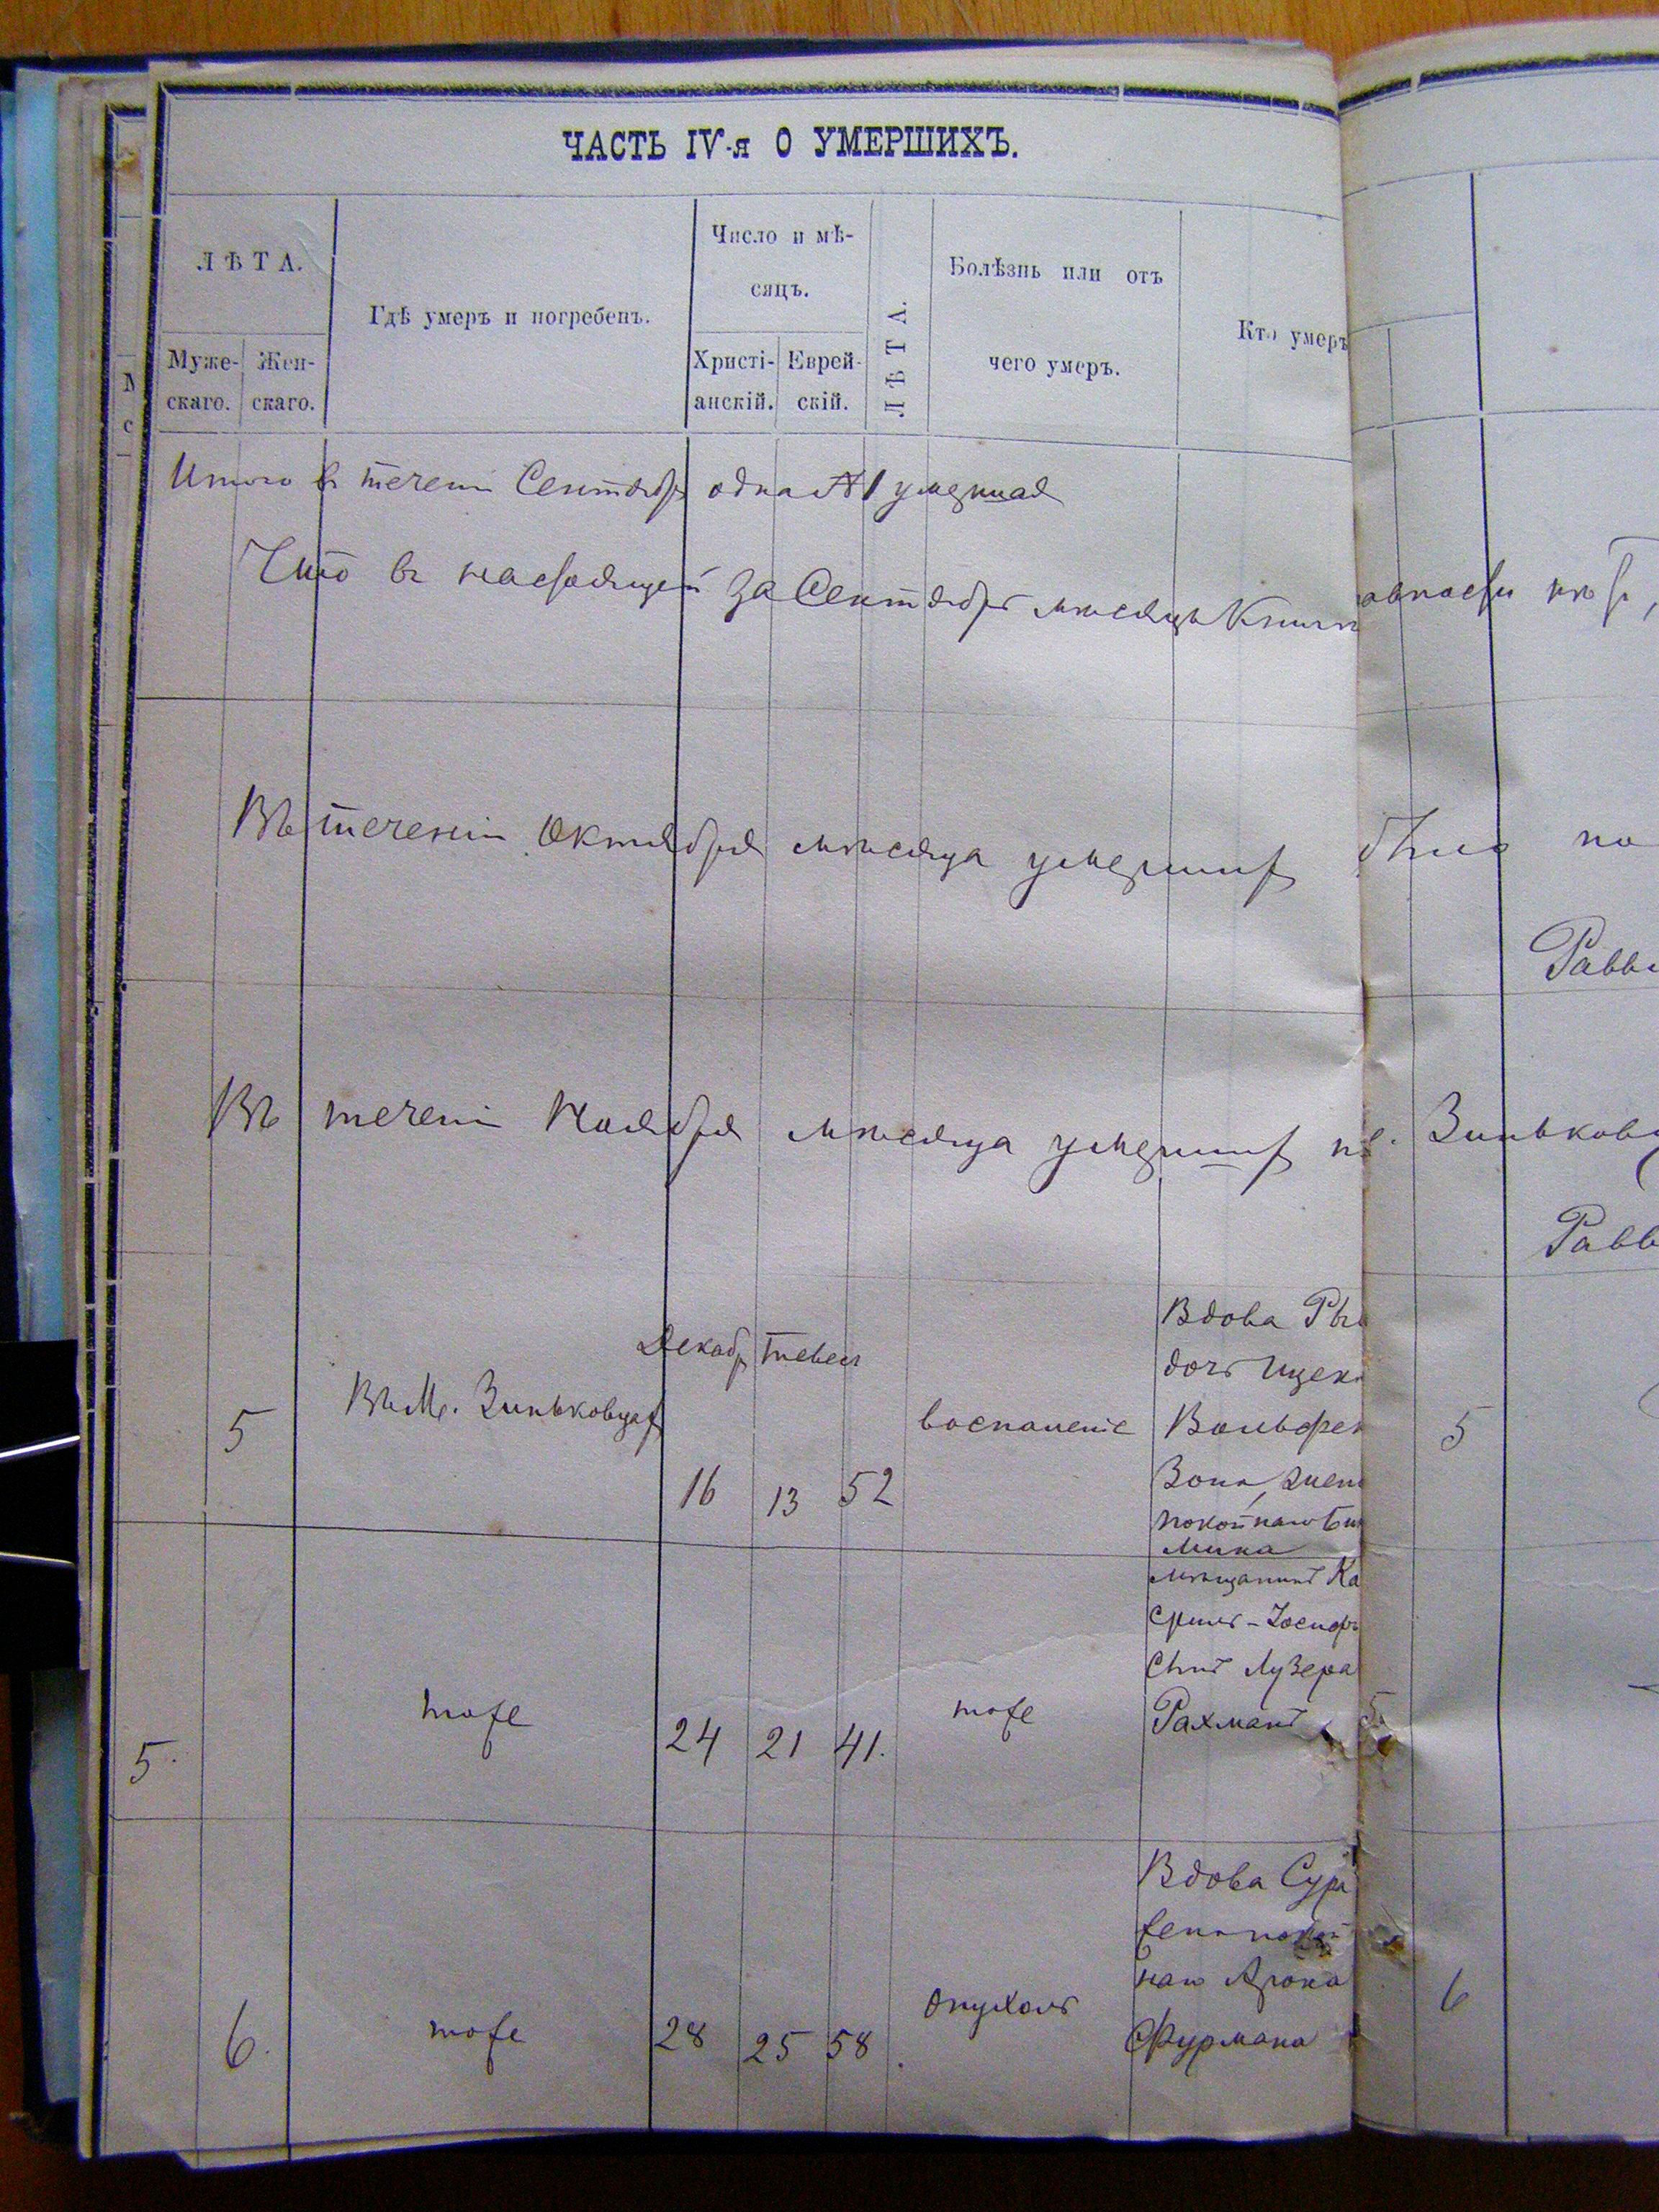 ЧАСТЬ IV-я О УМЕРШИХЪ.
ЛѢТА.
Муже-
скаго.
Жен-
скаго.
Гдѣ умеръ и погребенъ.
Число и мѣ-
сяцъ.
Христі-
анскій.
Еврей-
скій.
ЛѢТА.
Болѣзнь или отъ
чего умеръ.
Кто умеръ
Итого в течени Сентябр одна №1 умершая
Что въ настоящей за Сентябрь мѣсяцъ Книгѣ
Въ теченіи Октября мѣсяца умершихъ было по
Равви
Въ течени Ноября мѣсяца умершихъ Зиньковц
Равв
5
Въ М. Зиньковцахъ
Декабр
16
Тевес
13
52
воспаление
Вдова
дочь Ицека
Вольфа
покойнаго
мина
5
5.
тоже
24
21
41.
тоже
мѣщанинъ Ка
сриль-Иосифъ
сынъ Лузера
Рахманъ
5
6.
тоже
28
25
58.
опухоль
Вдова Сура
жена покой
наго Арона
Фурмана
6